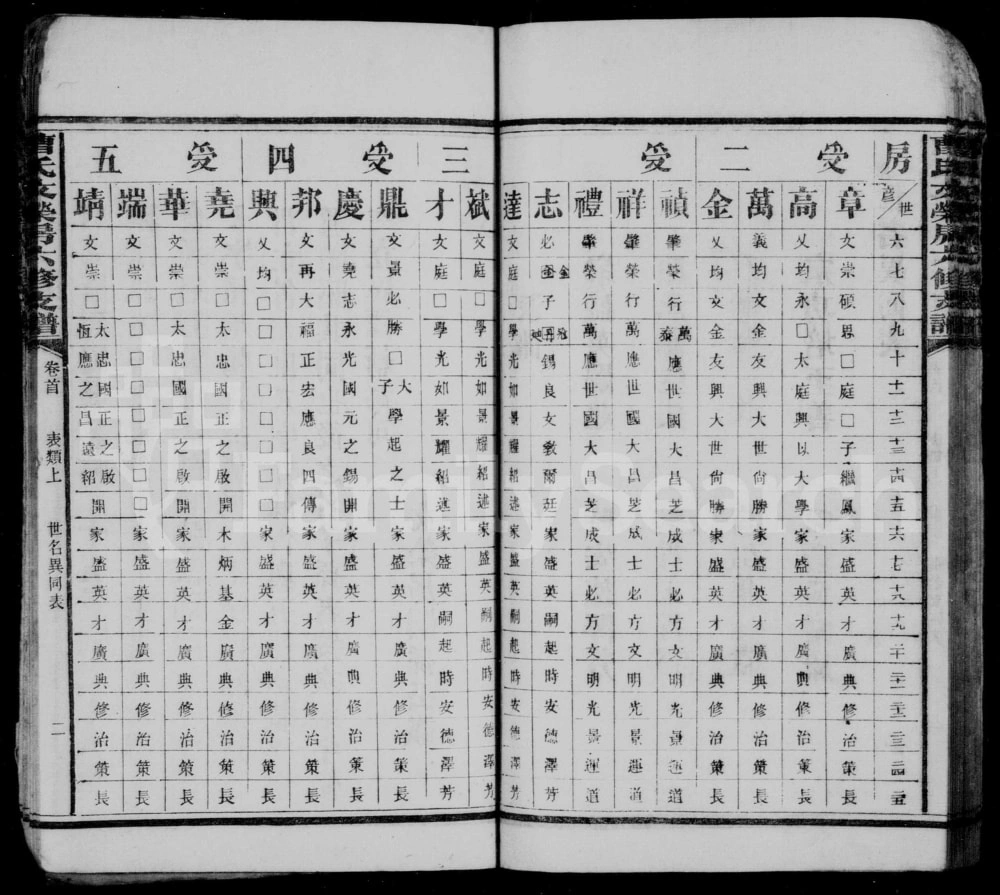 曹氏文榮房六修支譜
房 受二 受三 受四 受五
彥 世 六 七 八 九 十 十一 十二 十三 十四 十五 十六 十七 十八 十九 二十 二十一 二十二 二十三 二十四 二十五
章 文崇碩思□庭□子繼鳳家盛英才廣典修治策長
高 乂均永□太庭興以大學家盛英才廣典修治策長
萬 義均文金友興大世尚勝家盛英才廣典修治策長
金 乂均文金友興大世尚勝家盛英才廣典修治策長
禎 肇榮行萬泰應世國大昌芝成士必方文明光景運道
祥 肇榮行萬應世國大昌芝成士必方文明光景運道
禮 肇榮行萬應世國大昌芝成士必方文明光景運道
志 必金子錫良文教爾廷家盛英嗣起時安德澤芳
達 文庭□學光如景耀紹述家盛英嗣起時安德澤芳
斌 文庭□學光如景耀紹述家盛英嗣起時安德澤芳
才 文庭□學光如景耀紹述家盛英嗣起時安德澤芳
鼎 文景必勝□大子學起之士家盛英才廣典修治策長
慶 文堯志永光國元之錫開家盛英才廣典修治策長
邦 文再大福正宏應良四傳家盛英才廣典修治策長
興 乂均□□□□□□□□家盛英才廣典修治策長
堯 文崇□太忠國正之啟開木炳基金廣典修治策長
華 文崇□太忠國正之啟開家盛英才廣典修治策長
端 文崇□□□□□□□□家盛英才廣典修治策長
靖 文崇□太恆忠應國之正昌之遠啟紹開家盛英才廣典修治策長
曹氏文榮房六修支譜 卷首 表類上 世名異同表 二